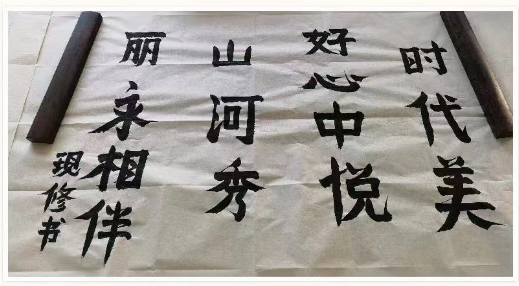 时代美
好心中悦
山河秀
丽永相伴
现修书